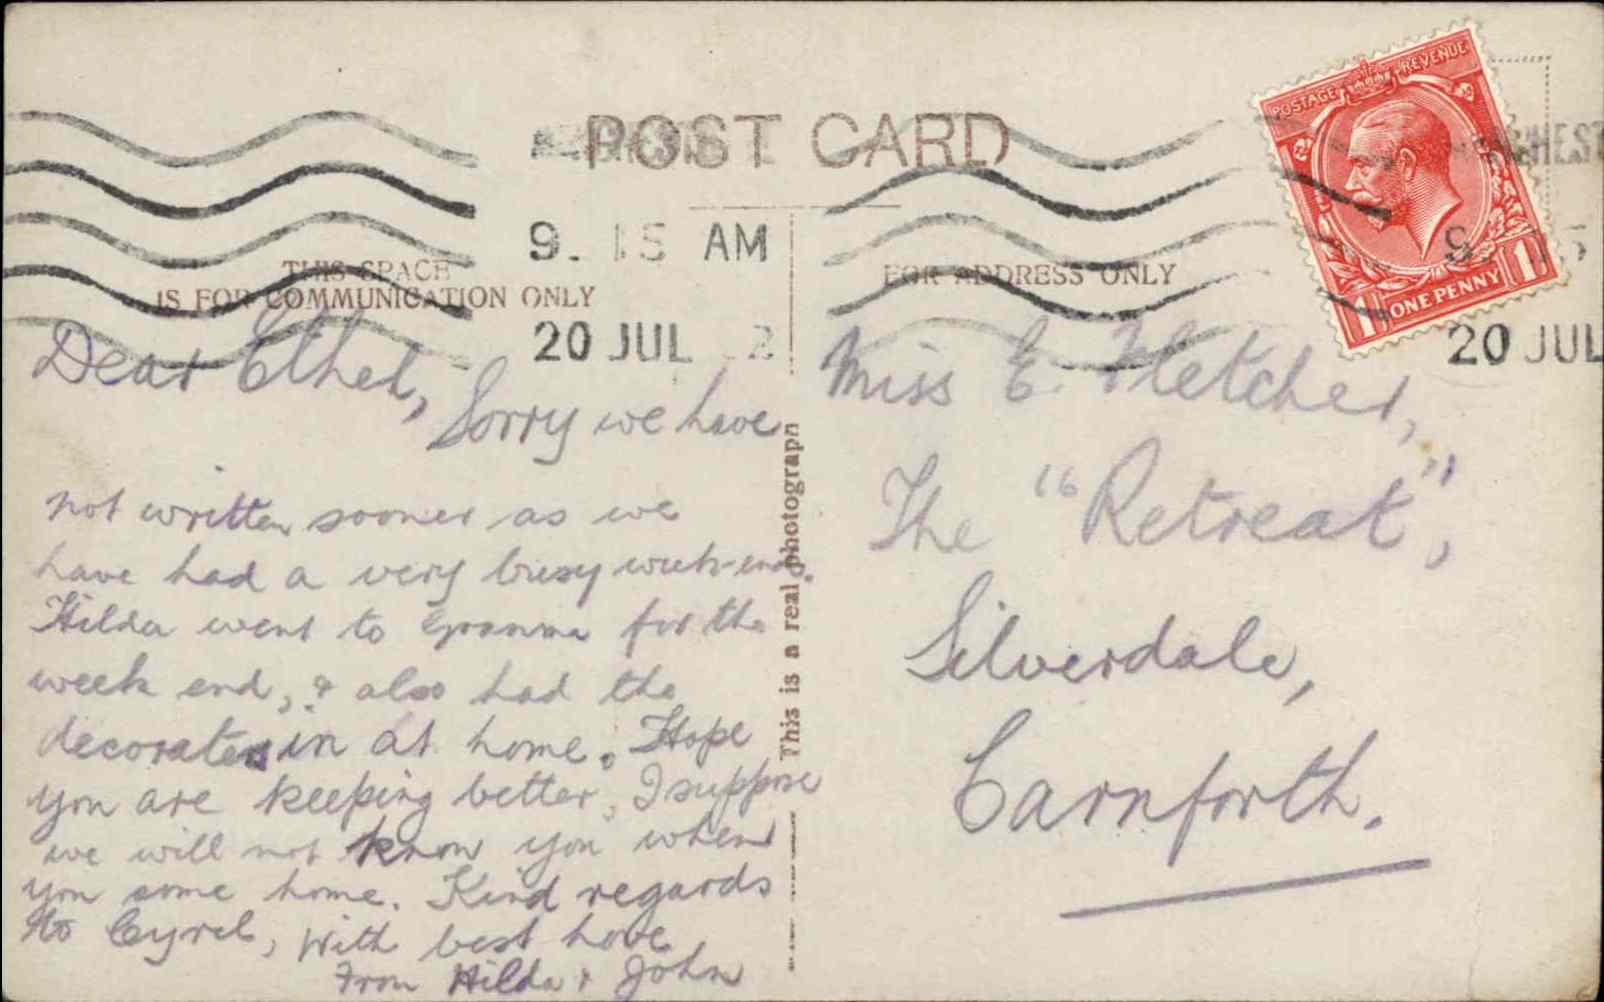 POST CARD
9. 15 AM
20 JUL
THIS SPACE
IS FOR COMMUNICATION ONLY
Dear Ethel,
Sorry we have
not written sooner as we
have had a very busy week-end.
Hilda went to Granma for the
week end, & also had the
decorater in at home. Hope
you are keeping better, I suppose
we will not know you when
you come home. Kind regards
to Cyrel, With best love
From Hilda & John
This is a real photograph
FOR ADDRESS ONLY
Miss E. Fletcher,
The "Retreat",
Silverdale,
Carnforth.
POSTAGE REVENUE
1 ONE PENNY 1
20 JUL